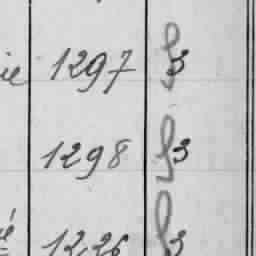 ie 1297 3
1298 3
é 1226 3